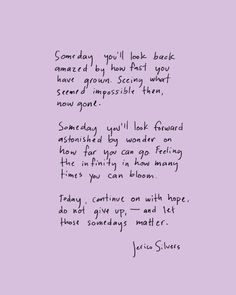 Someday you'll look back
amazed by how fast you
have grown. Seeing what
seemed impossible then,
now gone.
Someday you'll look forward
astonished by wonder on
how far you can go. Feeling
the infinity in how many
times you can bloom.
Today, continue on with hope,
do not give up, — and let
those somedays matter.
Jerico Silvers